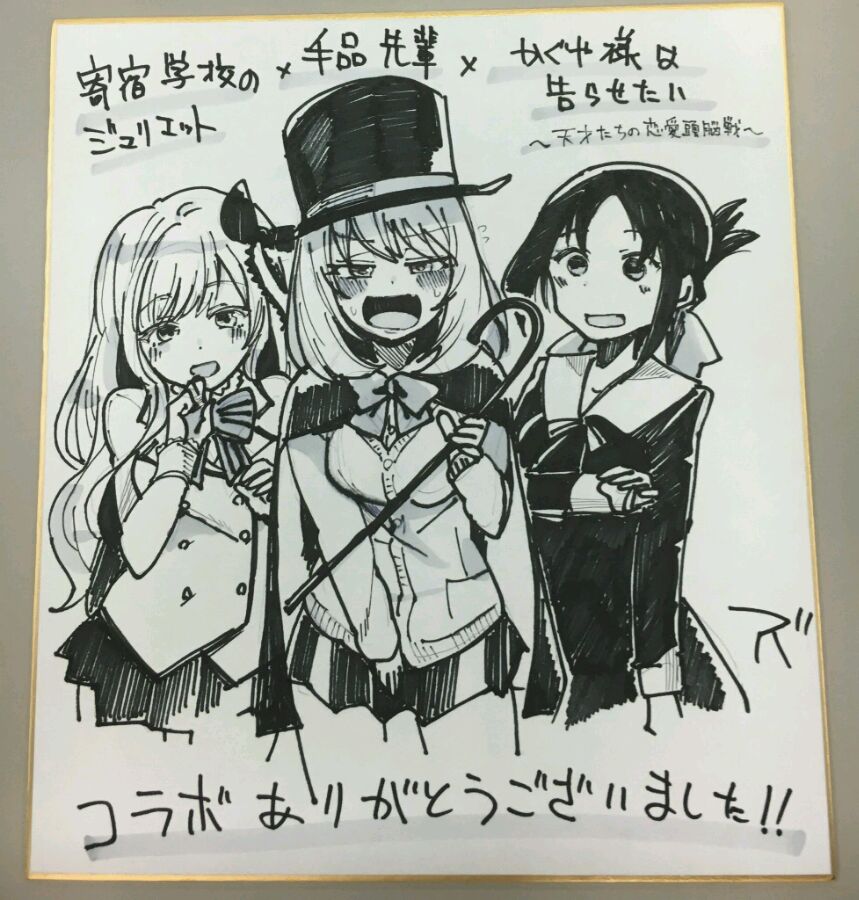 寄宿学校の
ジュリエット
×
手品先輩
×
かぐや様は
告らせたい
〜天才たちの恋愛頭脳戦〜
アズ
コラボありがとうございました!!